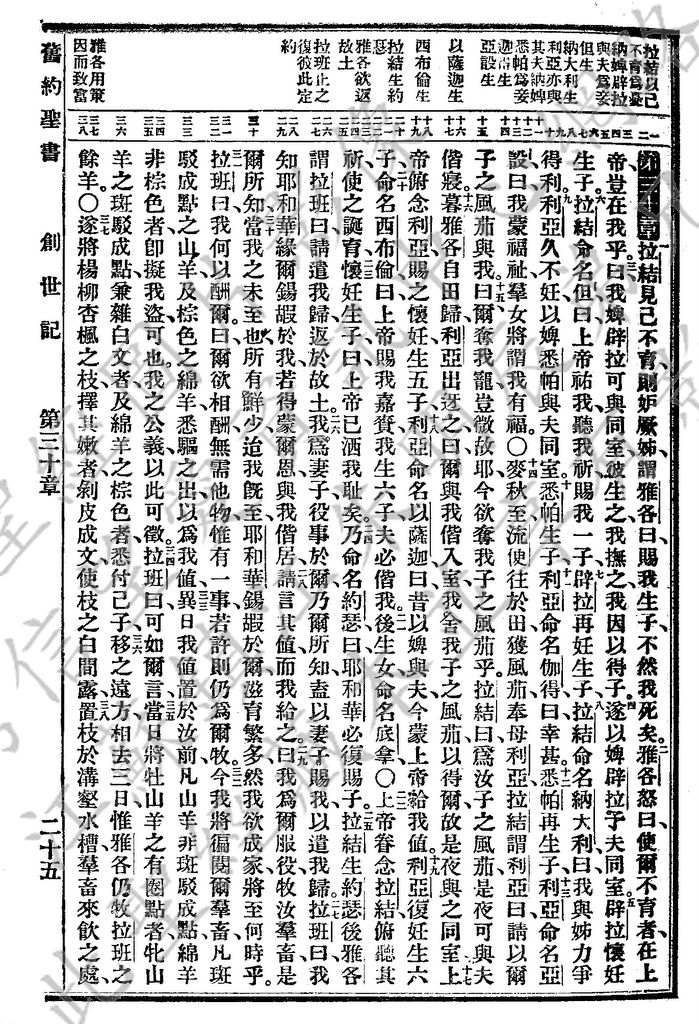 舊約聖書 創世記 第三十章 二十五
拉結以己
不育爲憂
納婢辟拉
與夫爲妾
但生
納大利生
利亞亦與
其夫納婢
悉帕爲妾
迦得生
亞設生
以薩迦生
西布倫生
拉結生約
瑟
雅各欲返
故土
拉班止之
復彼此定
約
雅各用策
因而致富
第三十章 拉結見己不育則妒厥姊謂雅各曰賜我生子不然我死矣雅各怒曰使爾不育者在上
帝豈在我乎曰我婢辟拉可與同室彼生之我撫之我因以得子遂以婢辟拉予夫同室辟拉懷妊
生子拉結命名但曰上帝祐我聽我祈賜我一子辟拉再妊生子拉結命名納大利曰我與姊力爭
得利利亞久不妊以婢悉帕與夫同室悉帕生子利亞命名伽得曰幸甚悉帕再生子利亞命名亞
設曰我蒙福祉羣女將謂我有福〇麥秋至流便往於田獲風茄奉母利亞拉結謂利亞曰請以爾
子之風茄與我曰爾奪我寵豈微故耶今欲奪我子之風茄乎拉結曰爲汝子之風茄是夜可與夫
偕寢暮雅各自田歸利亞出迓之曰爾與我偕入室我舍我子之風茄以得爾故是夜與之同室上
帝俯念利亞賜之懷妊生五子利亞命名以薩迦曰昔以婢與夫今蒙上帝給我値利亞復妊生六
子命名西布倫曰上帝賜我嘉賚我生六子夫必偕我後生女命名底拿〇上帝眷念拉結俯聽其
祈使之誕育懷妊生子曰上帝已洒我恥矣乃命名約瑟曰耶和華必復賜子拉結生約瑟後雅各
謂拉班曰請遣我歸返於故土我爲妻子役事於爾乃爾所知盍以妻子賜我以遣我歸拉班曰我
知耶和華緣爾錫嘏於我若得蒙爾恩與我偕居請言其値而我給之曰我爲爾服役牧汝羣畜是
爾所知當我之未至也所有鮮少迨我旣至耶和華錫嘏於爾滋育繁多然我欲成家將至何時乎
拉班曰我何以酬爾曰爾欲相酬無需他物惟有一事若許則仍爲爾牧今我將徧閱爾羣畜凡斑
駁成點之山羊及棕色之綿羊悉驅之出以爲我値異日我値置於汝前凡山羊非斑駁成點綿羊
非棕色者卽擬我盜可也我之公義以此可徵拉班曰可如爾言當日將牡山羊之有圈點者牝山
羊之斑駁成點兼雜白文者及綿羊之棕色者悉付己子移之遠方相去三日惟雅各仍牧拉班之
餘羊〇遂將楊柳杏楓之枝擇其嫩者剝皮成文使枝之白間露置枝於溝壑水槽羣畜來飲之處